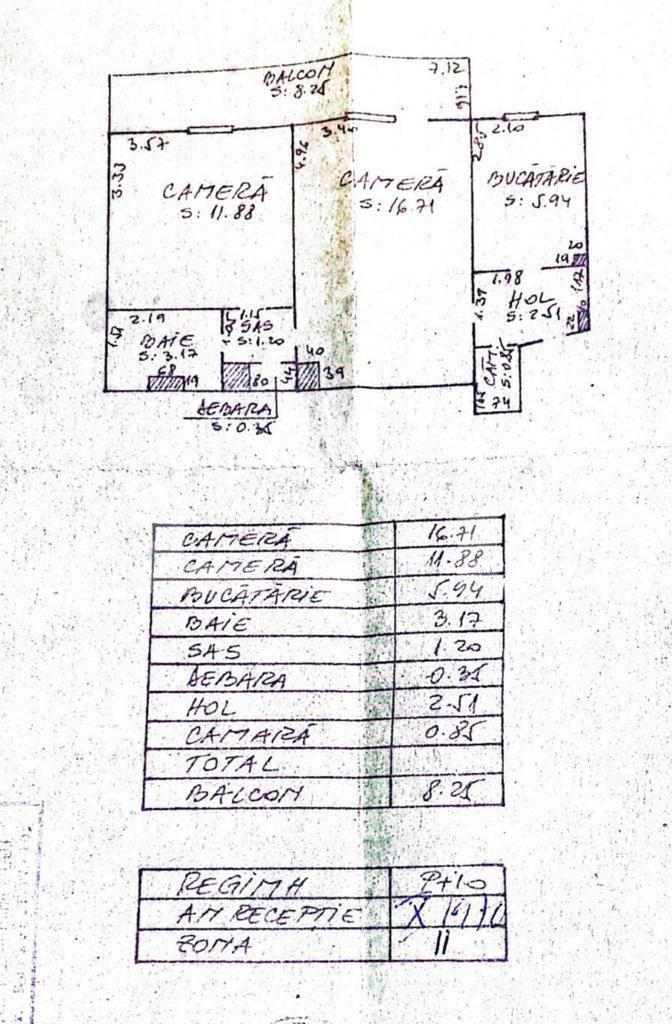 BALCON
S: 8.25
7.12
1.16
3.57
3.33
CAMERĂ
S: 11.88
4.96
CAMERĂ
S: 16.71
2.85
2.10
BUCĂTĂRIE
S: 5.94
20
19
1.98
1.39
HOL
S: 2.51
22
2.19
BAIE
S: 3.17
68
19
1.15
SAS
S: 1.20
80
44
40
39
DEBARA
S: 0.35
CĂM
S: 0.85
74
CAMERĂ 16.71
CAMERĂ 11.88
BUCĂTĂRIE 5.94
BAIE 3.17
SAS 1.20
DEBARA 0.35
HOL 2.51
CAMARĂ 0.85
TOTAL
BALCON 8.25
REGIMH P+10
AN RECEPTIE X
ZONA II